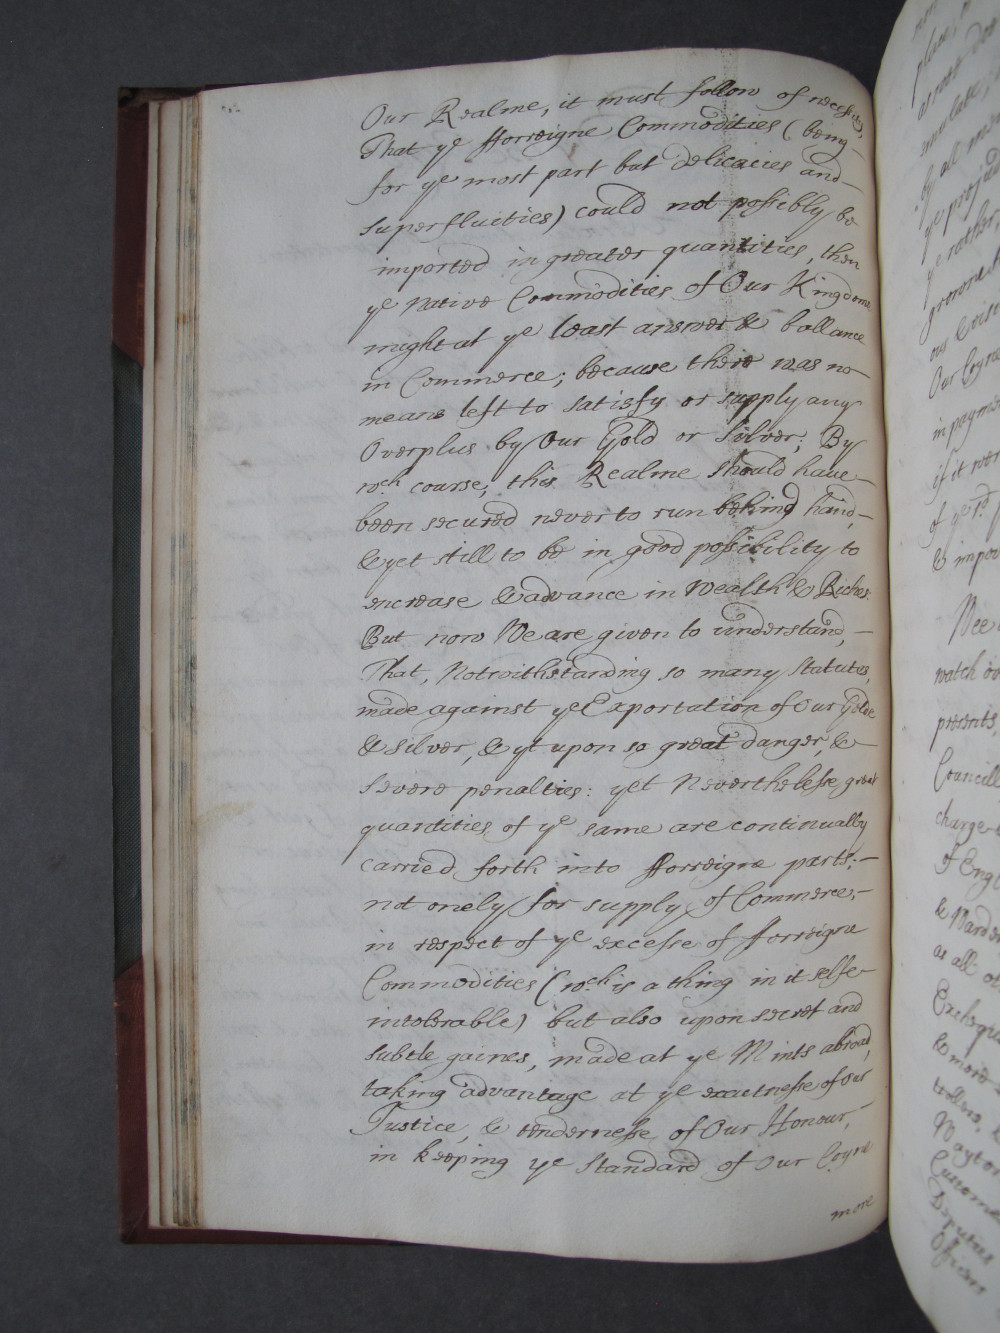 Our Realme, it must follow of necessity,
That ye fforreigne Commodities (being
for ye most part but delicacies and
superfluities) could not possibly be
imported in greater quantities, then
ye Native Commodities of Our Kingdome
might at ye least answer & ballance
in Commerce; because there was no
means left to satisfy or supply any
Overplus by Our Gold or Silver; By
wch course, this Realme should have
been secured never to run behind hand,
& yet still to be in good possibility to
encrease & advance in Wealth & Riches:
But now We are given to understand,
That, Notwithstanding so many Statutes,
made against ye Exportation of Our Golde
& Silver, & yt upon so great danger, &
severe penalties: yet Neverthelesse great
quantities of ye same are continually
carried forth into fforreigne parts;
not onely for supply of Commerce,
in respect of ye excesse of fforreigne
Commodities (wch is a thing in it selfe
intolerable) but also upon secret and
subtle gaines, made at ye Mints abroad,
taking advantage at ye exactnesse of our
Justice, & tendernesse of Our Honour,
in keeping ye Standard of Our Coyne
more
place,
as not
by all
ye rather,
Our Coyne
in payme
if it wer
of ye sd
& impor
Wee
watch ov
presents,
Councill
charge
of Engl
& Warde
as all ot
Excheque
& more
Mayto
Custome
Deputies
Officers